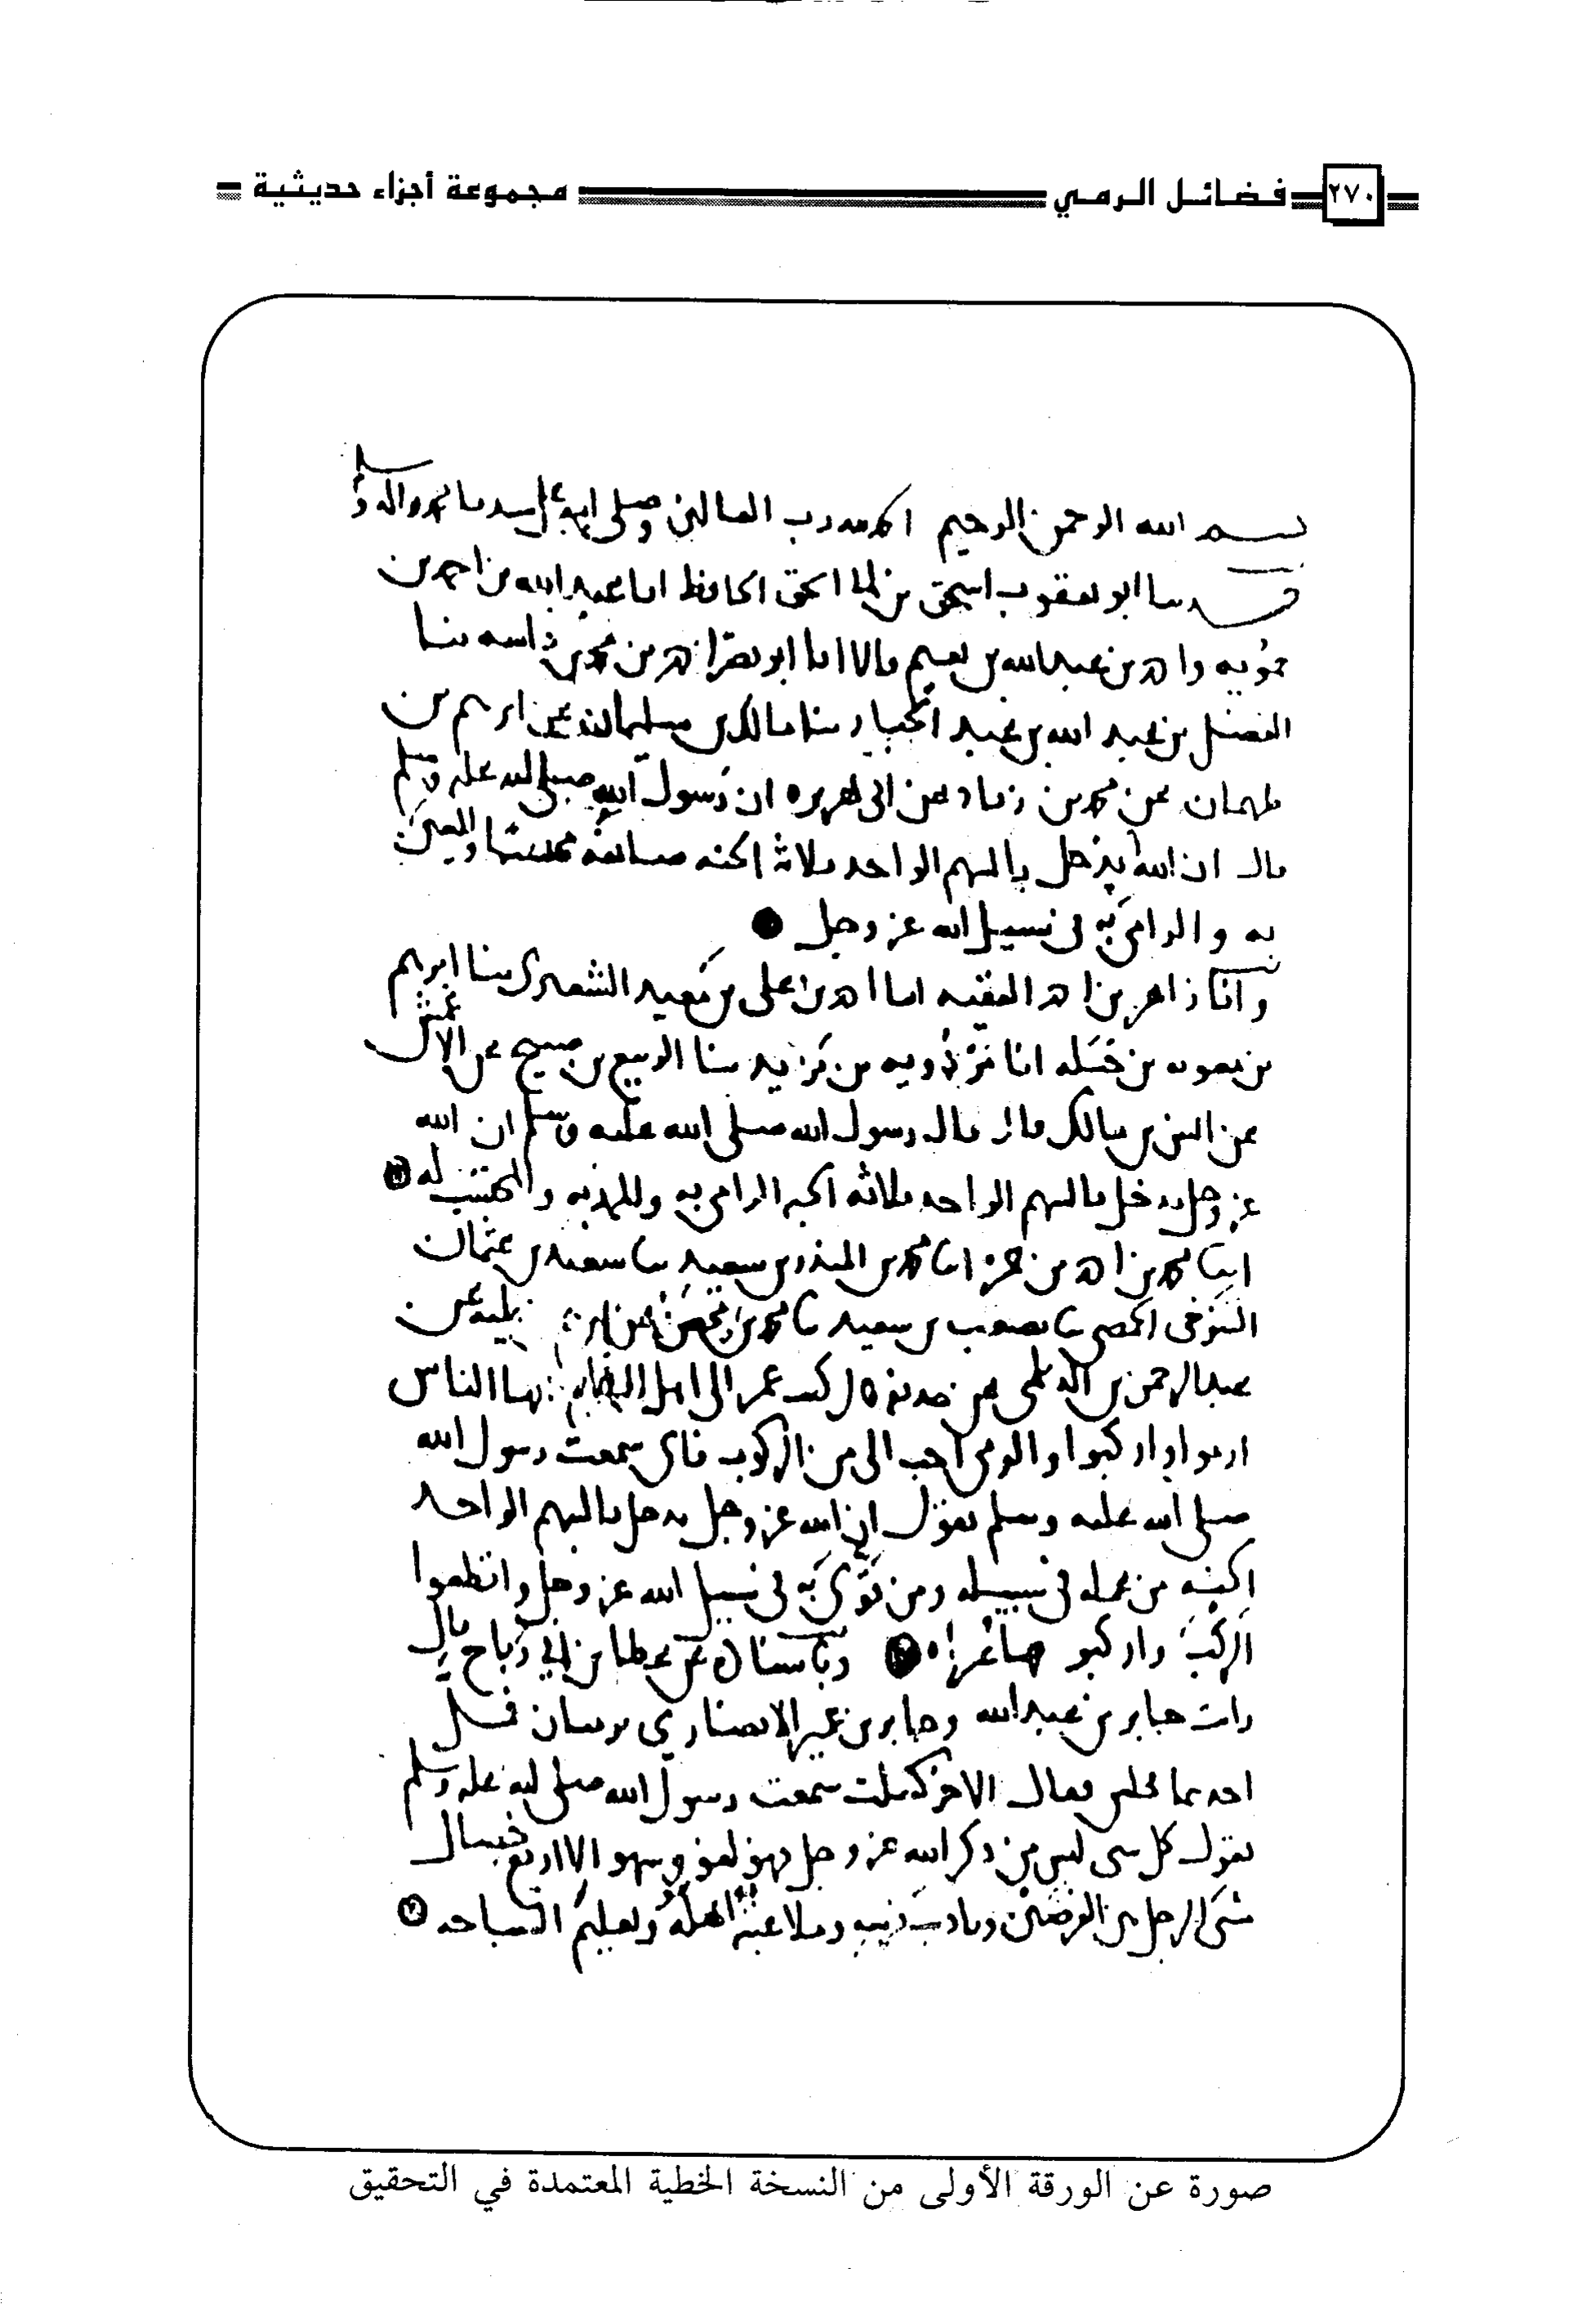 ٢٧٠ فضائل الرمي مجموعة أجزاء حديثية
بسم الله الرحمن الرحيم الحمد لله رب العالمين وصلى الله على سيدنا محمد واله وسلم
حدثنا ابو يعقوب اسحق بن الحافظ انا عبد الله بن احمد بن
حمويه واحمد بن عبد الله بن نعيم قالا انا ابو نصر احمد بن محمد بن ثنا
الفضل بن عبد الله بن عبد الجبار ثنا مالك بن سليمان عن ابرهيم بن
طهمان عن محمد بن زياد عن ابي هريره ان رسول الله صلى الله عليه وسلم
قال ان الله يدخل بالسهم الواحد ثلاثة الجنه صانعه محتسبا والمعين
به والرامي به في سبيل الله عز وجل
وانا زاهر بن احمد الفقيه انا احمد بن علي بن معبد الشعيري ثنا ابرهيم
بن انا بن يزيد ثنا الربيع بن صبيح عن الاعمش
عن انس بن مالك قال قال رسول الله صلى الله عليه وسلم ان الله
عز وجل يدخل بالسهم الواحد ثلاثه الجنه الرامي به والممد به والمحتسب له
انا محمد بن احمد بن حمزه انا محمد بن المنذر بن سعيد ثنا سعيد بن عثمان
التنوخي الحمصي ثنا بن سعيد ثنا محمد بن محصن عن ابرهيم بن ابي عبلة عن
عبد الرحمن بن الديلمي عن حذيفه قال كتب عمر الى اهل الشام ايها الناس
ارموا واركبوا والرمي احب الي من الركوب فاني سمعت رسول الله
صلى الله عليه وسلم يقول ان الله عز وجل يدخل بالسهم الواحد
الجنه من عمله في سبيله ومن قوي به في سبيل الله عز وجل واقطعوا
الركب واركبو عن عطا بن ابي رباح قال
رايت جابر بن عبد الله وجابر بن عمير الانصاري يرميان فمل
احدهما فجلس فقال الاخر كسلت سمعت رسول الله صلى الله عليه وسلم
يقول كل شي ليس من ذكر الله عز وجل فهو لغو وسهو الا اربع خصال
مشي الرجل بين الغرضين وتاديب فرسه وملاعبة اهله وتعليم السباحه
صورة عن الورقة الأولى من النسخة الخطية المعتمدة في التحقيق